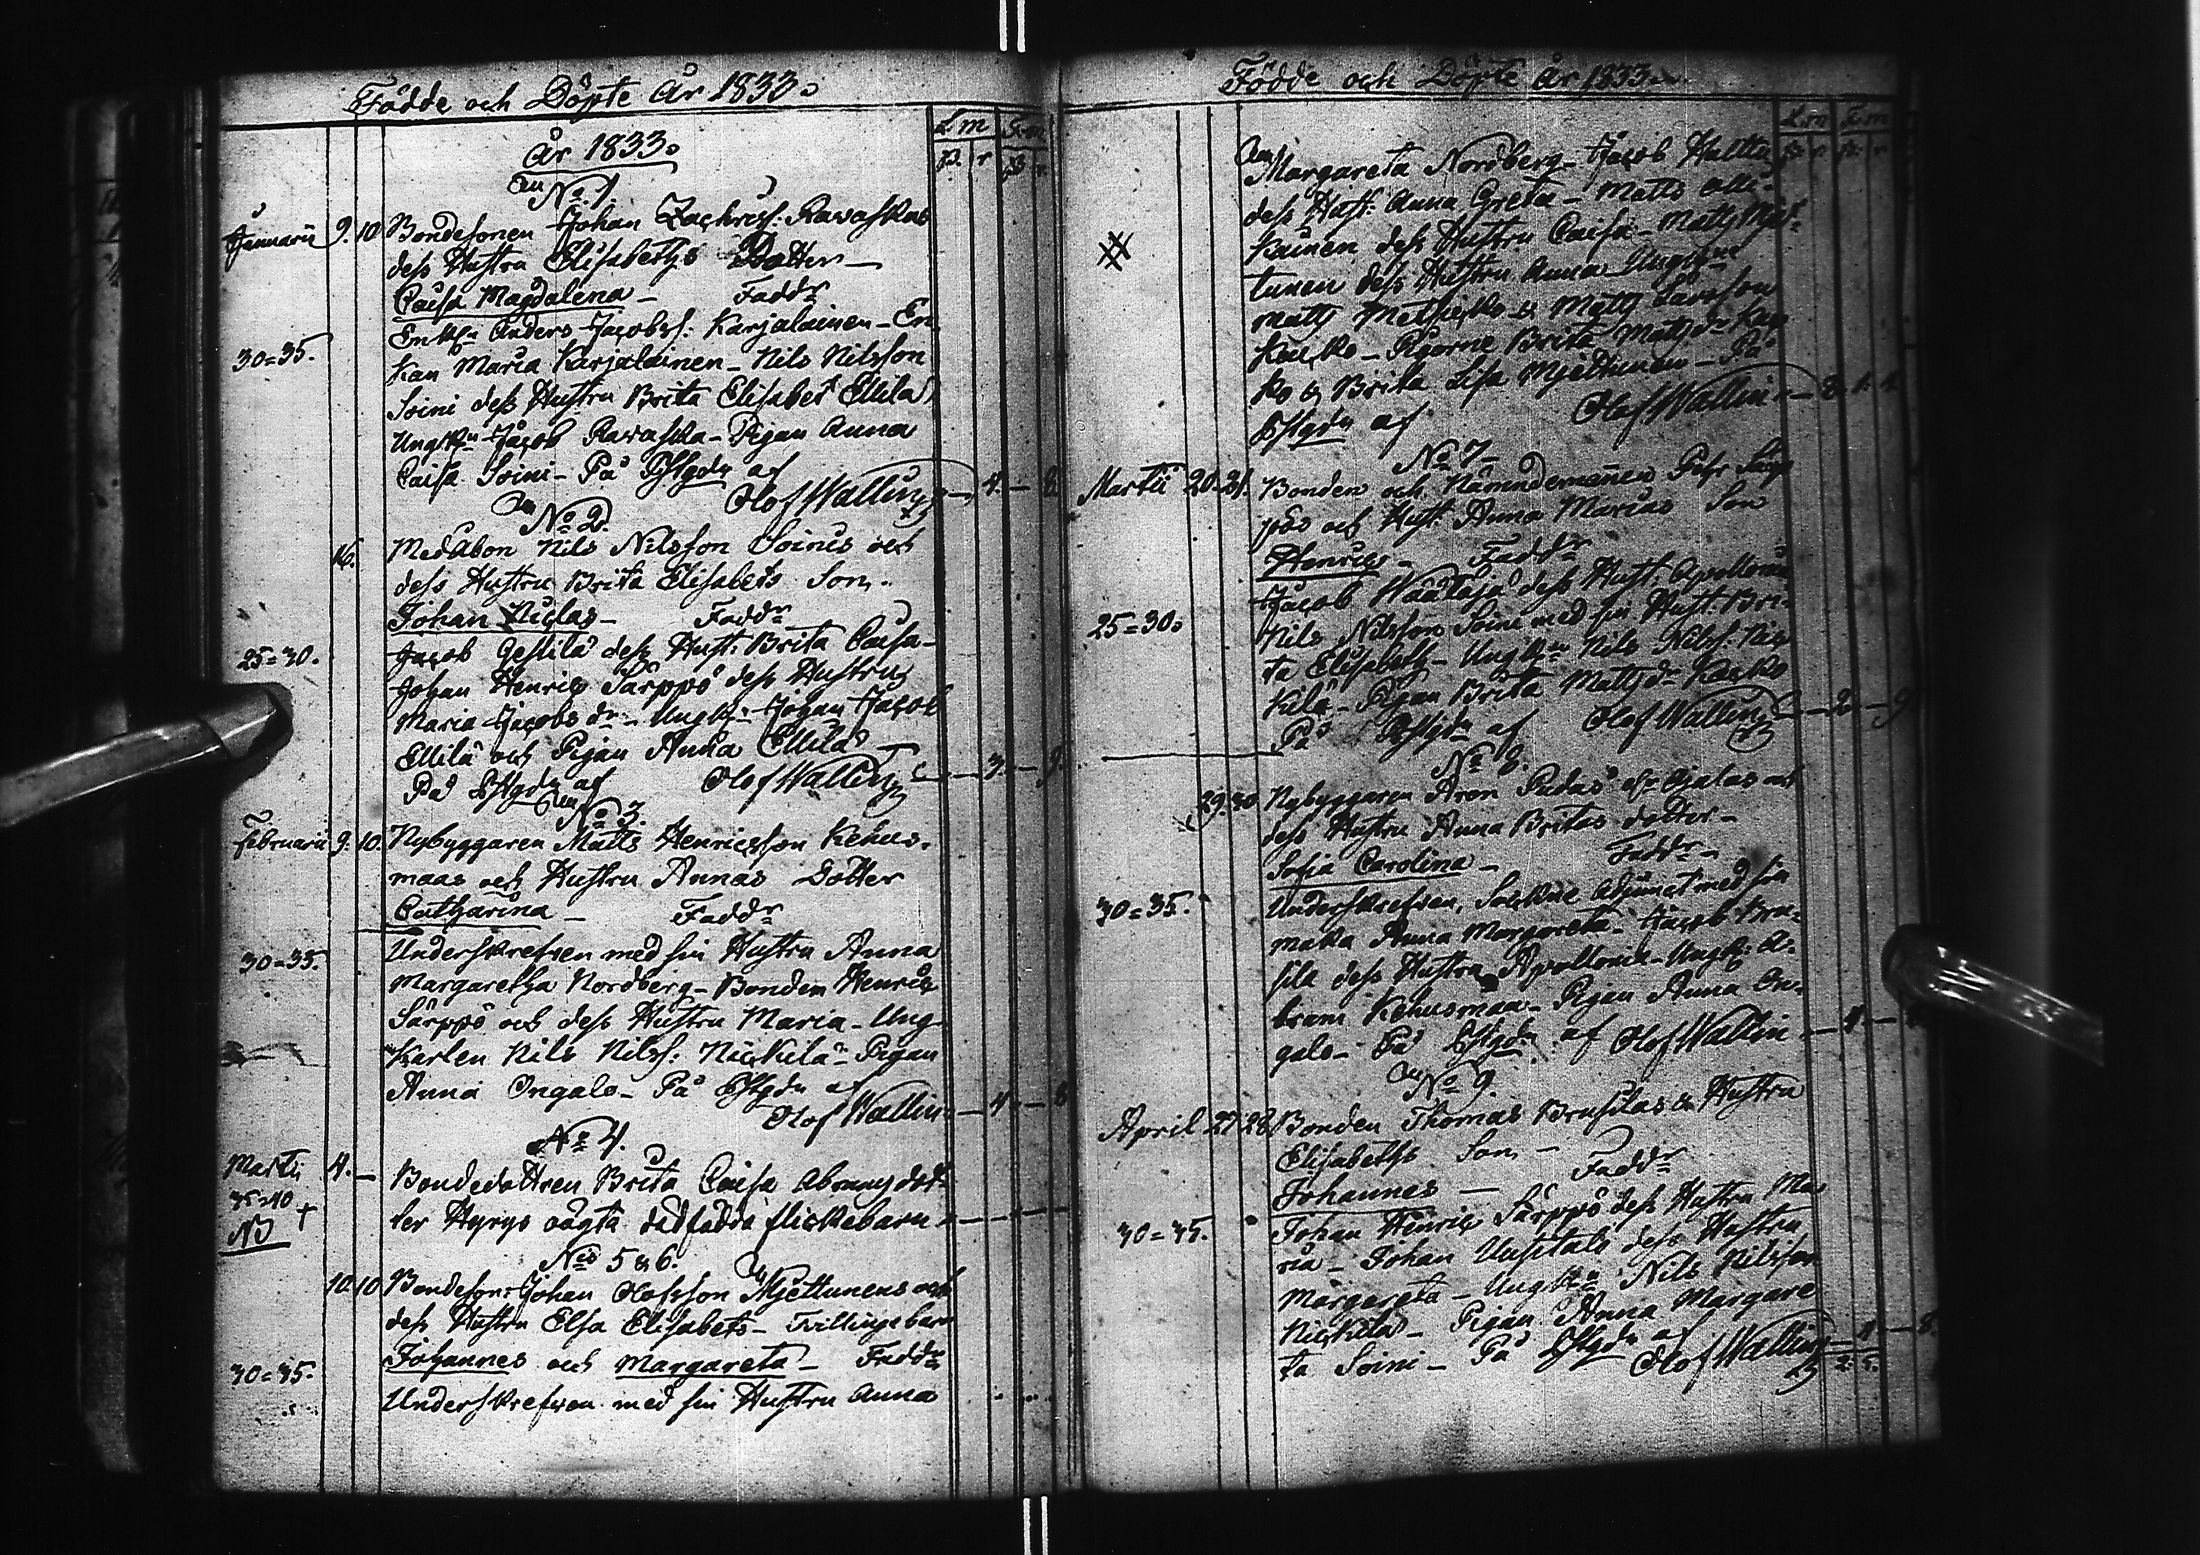 Födde och Döpte År 1833.
L.m F.m
År 1833.
No. 1
Januarii 9. 10 Bondesonen Johan Zachriss: Ravaskas
dess Hustru Elisabeths Dotter
Caisa Magdalena – Faddr
Anders Jacobss: Karjalainen – En-
30=35. kan Maria Karjalainen – Nils Nilsson
Soini dess Hustru Brita Elisabet Ellilä
Ungkn Jacob Ravaska – Pigan Anna
Caisa Soini – På
Olof Wallin 4 – 8.
No 2.
16. Nils Nilsson Soinis och
dess Hustru Brita Elisabets Son.
Johan Niclas – Faddr
25=30. Jacob dess Hust: Brita Caisa –
Johan Henric Särppö dess Hustru
Maria Jacobs dr – Ungkn Johan Jacob
Ellilä och Pigan Anna Ellilä –
På af Olof Wallin 3. – 9.
No 3.
Februarii 9. 10. Nybyggaren Matts Henricsson Kehus-
maas och Hustru Annas Dotter
Catharina – Faddr
30=35. Underskrefven med sin Hustru Anna
Margaretha Nordberg – Bonden Henric
Särppö och dess Hustru Maria – Ung-
Karlen Nils Nilss: Nickilä – Pigan
Anna Ongalo – På af
Olof Wallin – 4. – 8
No 4.
Martii 4. – Bondedottren Brita Caisa Abramsdot-
35=40 + ter Hyrys oägta dödfödda flickebarn
NB
Nis 5 & 6.
10. 10 Bondeson: Johan Olofsson Mjettunens och
dess Hustru Elsa Elisabets – Tvillingebarn
Johannes och Margareta – Faddr
30=35. Underskrefven med sin Hustru Anna
Födde och Döpte År 1833.
L.m F.m
Margareta Nordberg – Jacob
dess Hust: Anna Greta – Matts
kainen dess Hustru Caisa – Matts Mjet-
tunen dess Hustru Anna
Matts & Matts Larsson
Kaicko – Pigorne Brita Mattsdr
ko & Brita Lisa Mjettunen – På
af Olof Wallin – 2. 1. 1.
No 7 –
Martii 20. 21. Bonden och Nämndemannen Pehr Särp-
pös och Hust: Anna Marias Son
Henric – Faddr
Jacob Määttäjä dess Hust: Apollonia
25=30. Nils Nilsson Soini med sin Hust: Bri-
ta Elisabeth – Ungkn Nils Nilss: Nic-
kilä – Pigan Brita Mattsdr
På af Olof Wallin – 2 – 9
No 8.
29. 30 Nybyggaren Aron Pudas och
dess Hustru Anna Britas dotter –
Sofia Carolina – Faddr –
30=35. Underskrefven, Sockne Adjunct med sin
maka Anna Margareta – Jacob Bru-
sila dess Hustru Apollonia – Ungk: A-
bram Kehusmaa – Pigan Anna On-
galo – På af Olof Wallin – 4 –
No 9.
April 27 28 Bonden Thomas Brusilas & Hustru
Elisabeths Son –
Johannes – Faddr
30=35. Johan Henric Särppö dess Hustru Ma-
ria – Johan Uusitalo dess Hustru
Margareta – Ungkn Nils Nilsson
Nickilä – Pigan Anna Margare
ta Soini – På af
Olof Wallin 4 – 8.
2. 5.